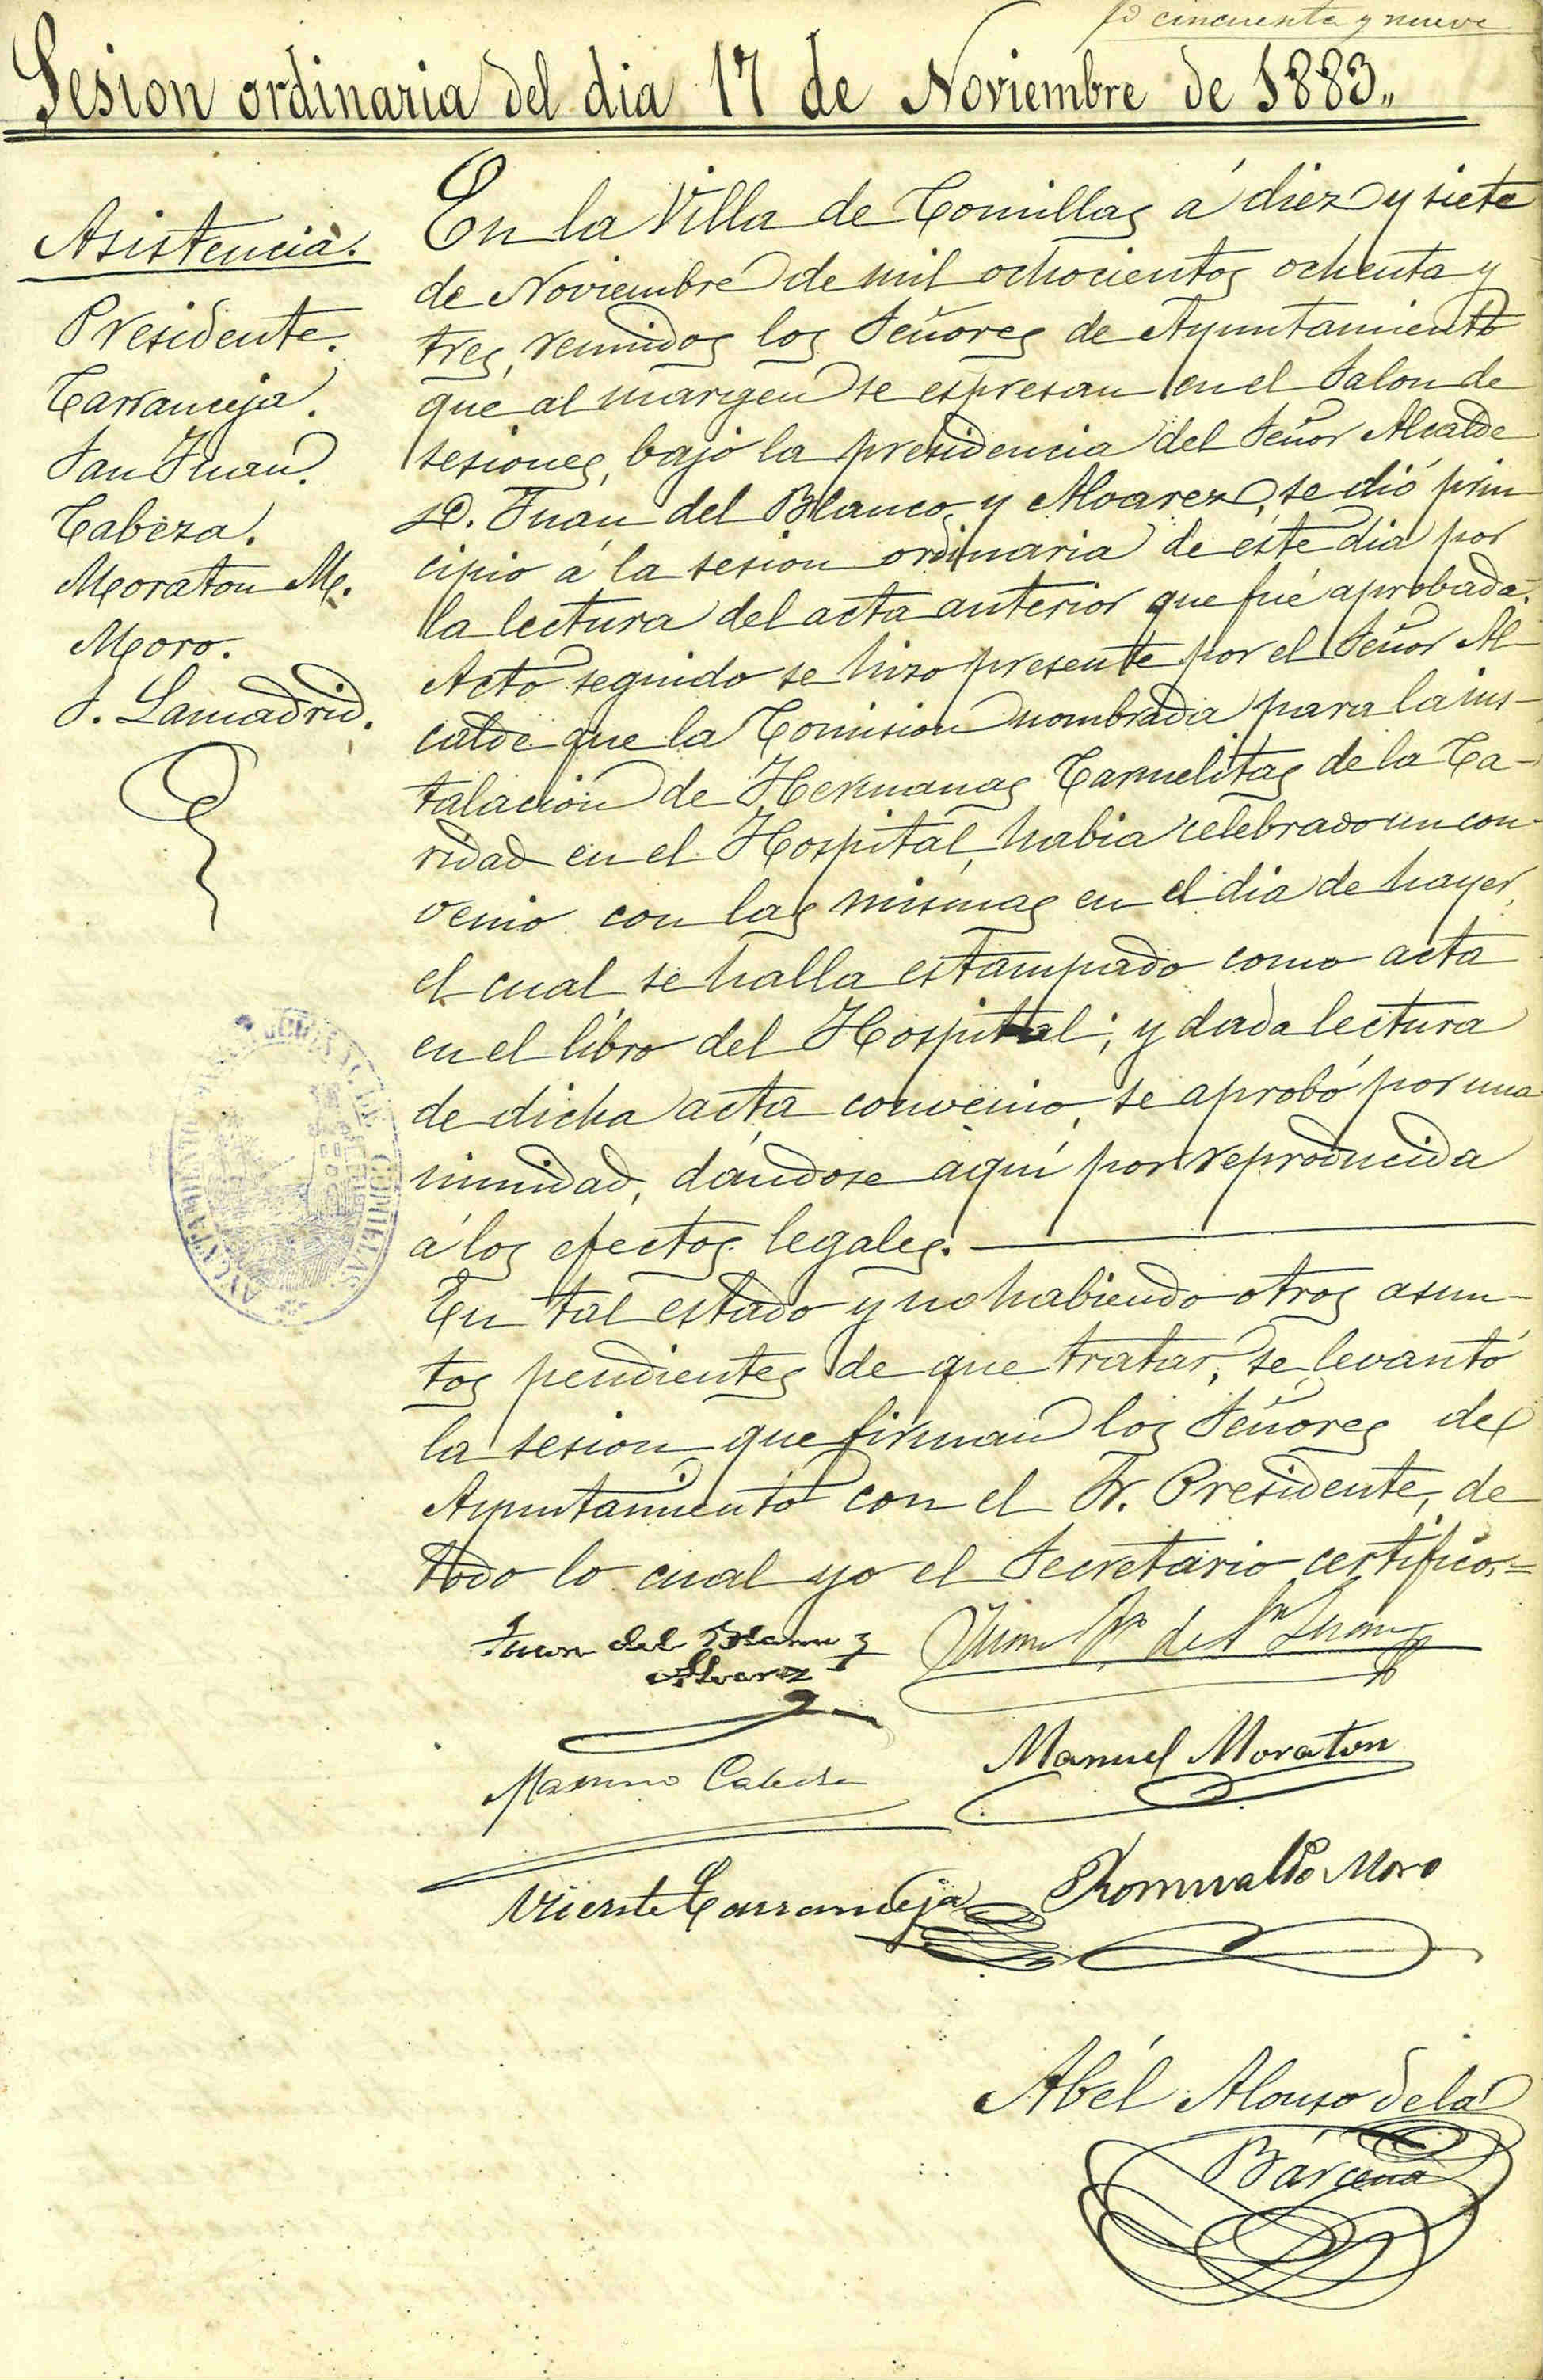 fº cincuenta y nueve
Sesion ordinaria del dia 17 de Noviembre de 1883.,
Asistencia.
Presidente.
Carranceja.
San Juan.
Cabeza.
Moraton M.
Moro.
S. Lamadrid.
En la Villa de Comillas á diez y siete
de Noviembre de mil ochocientos ochenta y
tres, reunidos los Señores de Ayuntamiento
que al margen se espresan en el Salon de
sesiones, bajo la presidencia del Señor Alcalde
D. Juan del Blanco y Alvarez, se dió prin
cipio á la sesion ordinaria de este dia por
la lectura del acta anterior que fué aprobada.
Acto seguido se hizo presente por el Señor Al-
calde que la Comision nombrada para la ins-
talación de Hermanas Carmelitas de la Ca-
ridad en el Hospital, habia celebrado un con-
venio con las mismas en el dia de hayer,
el cual se halla estampado como acta
en el libro del Hospital; y dada lectura
de dicha acta convenio, se aprobó por una
nimidad, dándose aquí por reproducida
á los efectos legales.
En tal estado y no habiendo otros asun-
tos pendientes de que tratar, se levantó
la sesion que firman los Señores del
Ayuntamiento con el Sr. Presidente, de
todo lo cual yo el Secretario certifico.=
AYUNTAMIENTO DE COMILLAS
Juan del Blanco y
Alvarez
de Sn Juan
Maximo Cabeza
Manuel Moraton
Vicente Carranceja
Romualdo Moro
Abél Alonso de la
Bárcena